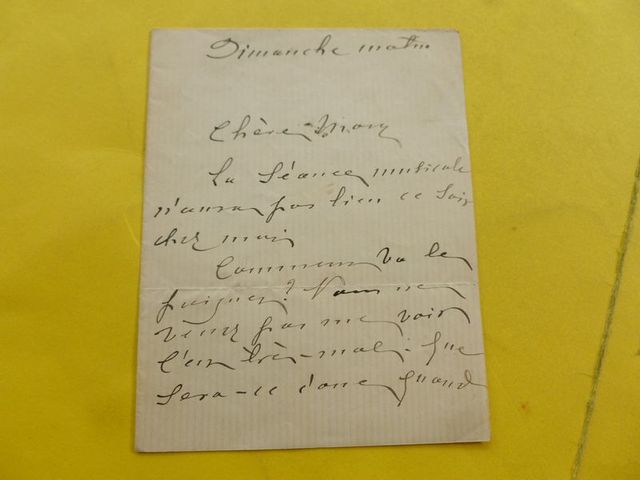 Dimanche matin
Chère Mary
La Séance musicale
n'aura pas lieu ce Soir
chez moi
Comment va le
poignet? Vous ne
venez pas me voir
C'est très-mal. Que
Sera-ce donc quand